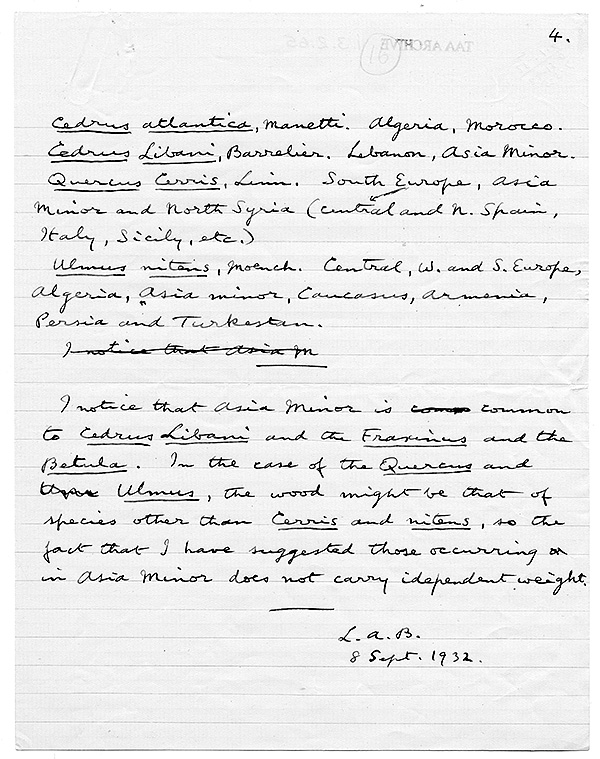 4.
TAA ARCHIVE
16
Cedrus atlantica, Manetti. Algeria, Morocco.
Cedrus Libani, Barrelier. Lebanon, Asia Minor.
Quercus Cerris, Linn. South Europe, Asia
Minor and North Syria (central and N. Spain,
Italy, Sicily, etc.)
Ulmus nitens, Moench. Central, W. and S. Europe,
Algeria, Asia Minor, Caucasus, Armenia,
Persia and Turkestan.
I notice that Asia M
I notice that Asia Minor is common
to Cedrus Libani and the Fraxinus and the
Betula. In the case of the Quercus and
Ulmus, the wood might be that of
species other than Cerris and nitens, so the
fact that I have suggested those occurring
in Asia Minor does not carry idependent weight.
L.A.B.
8 Sept. 1932.